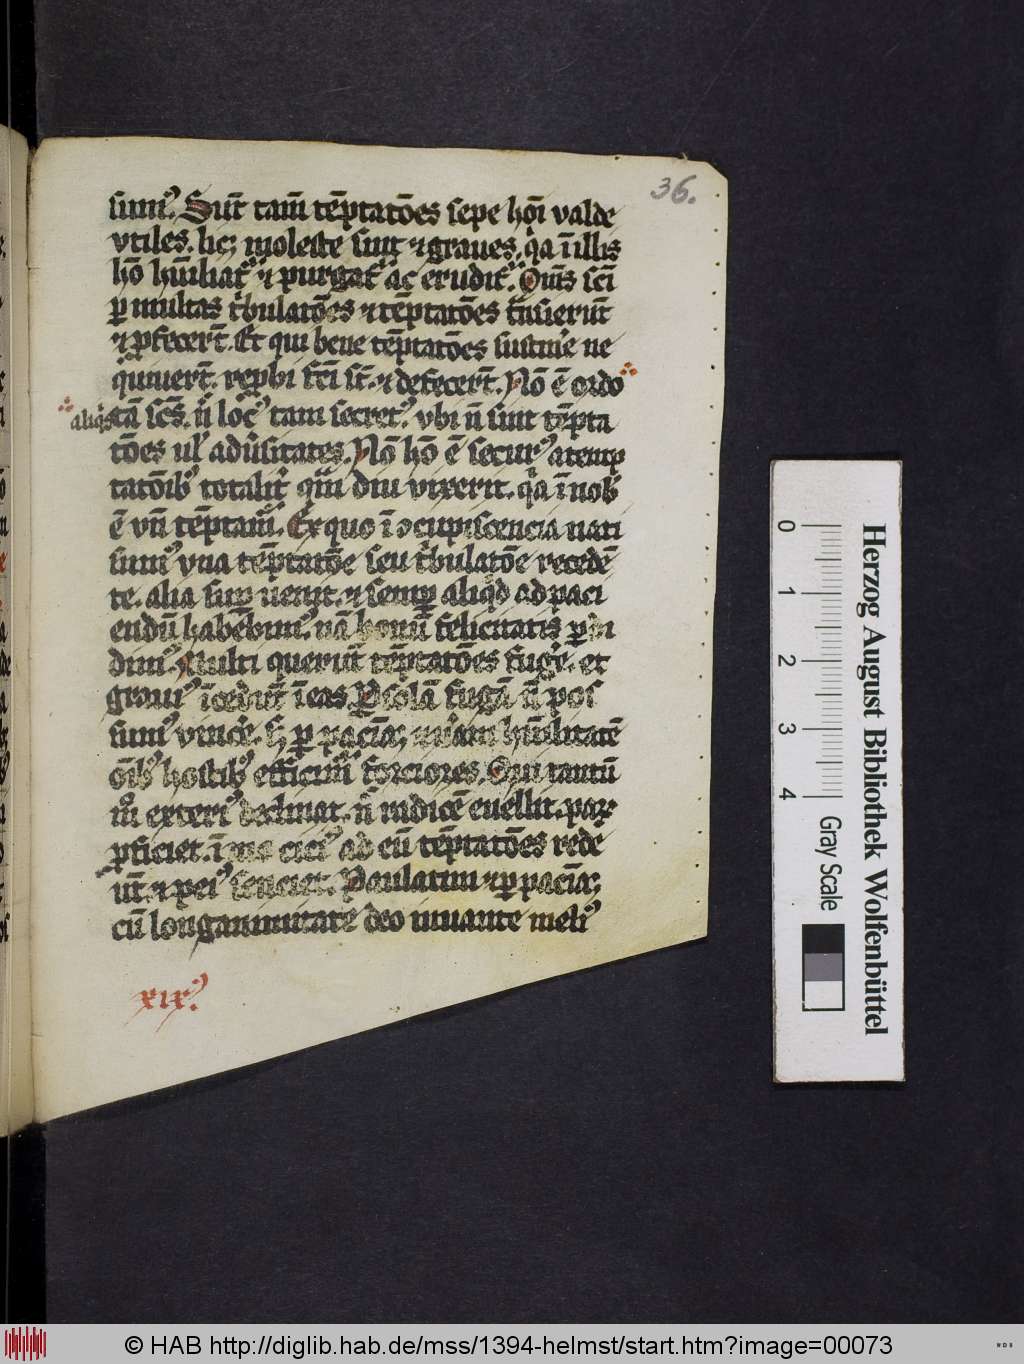 36.
sumꝰ. Sūt tam̄ tēptatōes sepe hoī valde
vtiles. lic; moleste sint ⁊ graues. qͣa ī illis
hō hūiliat᷑ ⁊ purgat᷑ ac erudit᷑. Om̄s scī
ꝑ multas tͥbulatōes ⁊ tēptatōes tͣnsierūt
⁊ ꝓfecer̄t. Et qui bene tēptatōes sustinͤe ne
qͥuiuer̄t. repbi fc̄i st̄. ⁊ defecer̄t. Nō ē ordo
aliqͥs
tā sc̄s. n̄ locꝰ tam secretꝰ. vbi n̄ sint tēpta
tōes ul' adūsitates. Nō hō ē securꝰ a temp
tatōibꝰ totalit᷑ qͣm diu vixerit. qͣa ī nob̄
ē vn̄ tēptam᷑. Ex quo ī ɔcupiscencia nati
sumꝰ vna tēptatōe seu tͥbulatōe recedē
te. alia suꝑ uenit. ⁊ semꝑ aliqͥd ad paci
endū habēbimꝰ. nā bonū felicitatis ꝑdi
dimꝰ. Multi querūt tēptatōes fugͤe. et
grauiꝰ īcedūt ī eas. Ꝑ solā fugā n̄ pos
sumꝰ vincͤe. s; ꝑ pacīā; ⁊ uͤam hūilitatē
oīb; hostibꝰ efficim᷑ forciores. Qui tantū
m̊ exteriꝰ declinat. n̄ radicē euellit. paꝝ
ꝓficiet. īmo ciciꝰ ad eū tēptatōes rede
ūt. ⁊ peiꝰ senciet. Paulatim ⁊ ꝑ pacīā;
cū longanimitate deo iuuante meliꝰ
xixꝰ
Herzog August Bibliothek Wolfenbüttel
0 1 2 3 4
Gray Scale
© HAB http://diglib.hab.de/mss/1394-helmst/start.htm?image=00073